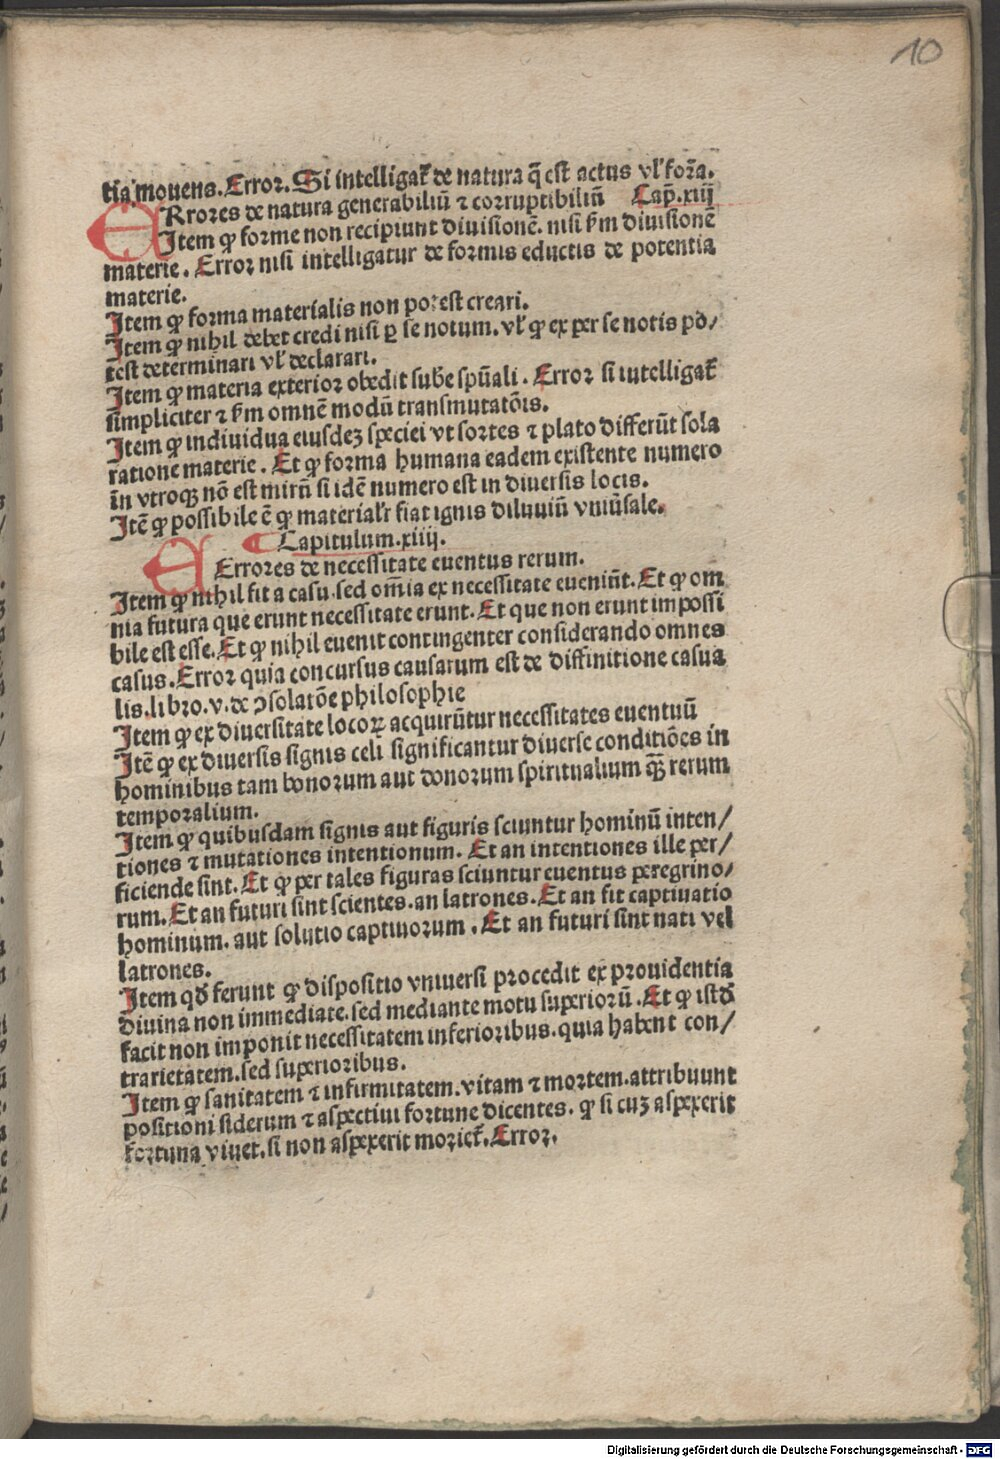 10
tia mouens. Error. Si intelligat᷑ de natura q̄ est actus vl' for̄a.
ERrores de natura generabiliū ⁊ corruptibiliū Cap̄.xiij
Item ꝙ forme non recipiunt diuisionē. nisi ẜm diuisionē
materie. Error nisi intelligatur de formis eductis de potentia
materie.
Item ꝙ forma materialis non potest creari.
Item ꝙ nihil debet credi nisi ꝑ se notum. vl' ꝙ ex per se notis po/
test determinari vl' declarari.
Item ꝙ materia exterior obedit sube spūali. Error si intelligat᷑
simpliciter ⁊ ẜm omnē modū transmutatōis.
Item ꝙ indiuidua eiusdeꝫ speciei vt sortes ⁊ plato differūt sola
ratione materie. Et ꝙ forma humana eadem existente numero
in vtroqꝫ nō est mirū si idē numero est in diuersis locis.
Itē ꝙ possibile ē ꝙ material'r fiat ignis diluuiū vniūsale.
Capitulum.xiiij.
Errores de necessitate euentus rerum.
Item ꝙ nihil fit a casu. sed om̄ia ex necessitate eueniūt. Et ꝙ om
nia futura que erunt necessitate erunt. Et que non erunt impossi
bile est esse. Et ꝙ nihil euenit contingenter considerando omnes
casus. Error quia concursus causarum est de diffinitione casua
lis. libro.v. de ꝯsolatōe philosophie
Item ꝙ ex diuersitate locoꝝ acquirūtur necessitates euentuū
Itē ꝙ ex diuersis signis celi significantur diuerse conditiōes in
hominibus tam bonorum aut donorum spiritualium qꝫ̄ rerum
temporalium.
Item ꝙ quibusdam signis aut figuris sciuntur hominū inten/
tiones ⁊ mutationes intentionum. Et an intentiones ille per/
ficiende sint. Et ꝙ per tales figuras sciuntur euentus peregrino/
rum. Et an futuri sint scientes. an latrones. Et an fit captiuatio
hominum. aut solutio captiuorum. Et an futuri sint nati vel
latrones.
Item qđ ferunt ꝙ dispositio vniuersi procedit ex prouidentia
diuina non immediate. sed mediante motu superiorū. Et ꝙ istđ
facit non imponit necessitatem inferioribus. quia habent con/
trarietatem. sed superioribus.
Item ꝙ sanitatem ⁊ infirmitatem. vitam ⁊ mortem. attribuunt
positioni siderum ⁊ aspectiui fortune dicentes. ꝙ si cuꝫ aspexerit
fortuna viuet. si non aspexerit moriet᷑. Error.
Digitalisierung gefördert durch die Deutsche Forschungsgemeinschaft - DFG